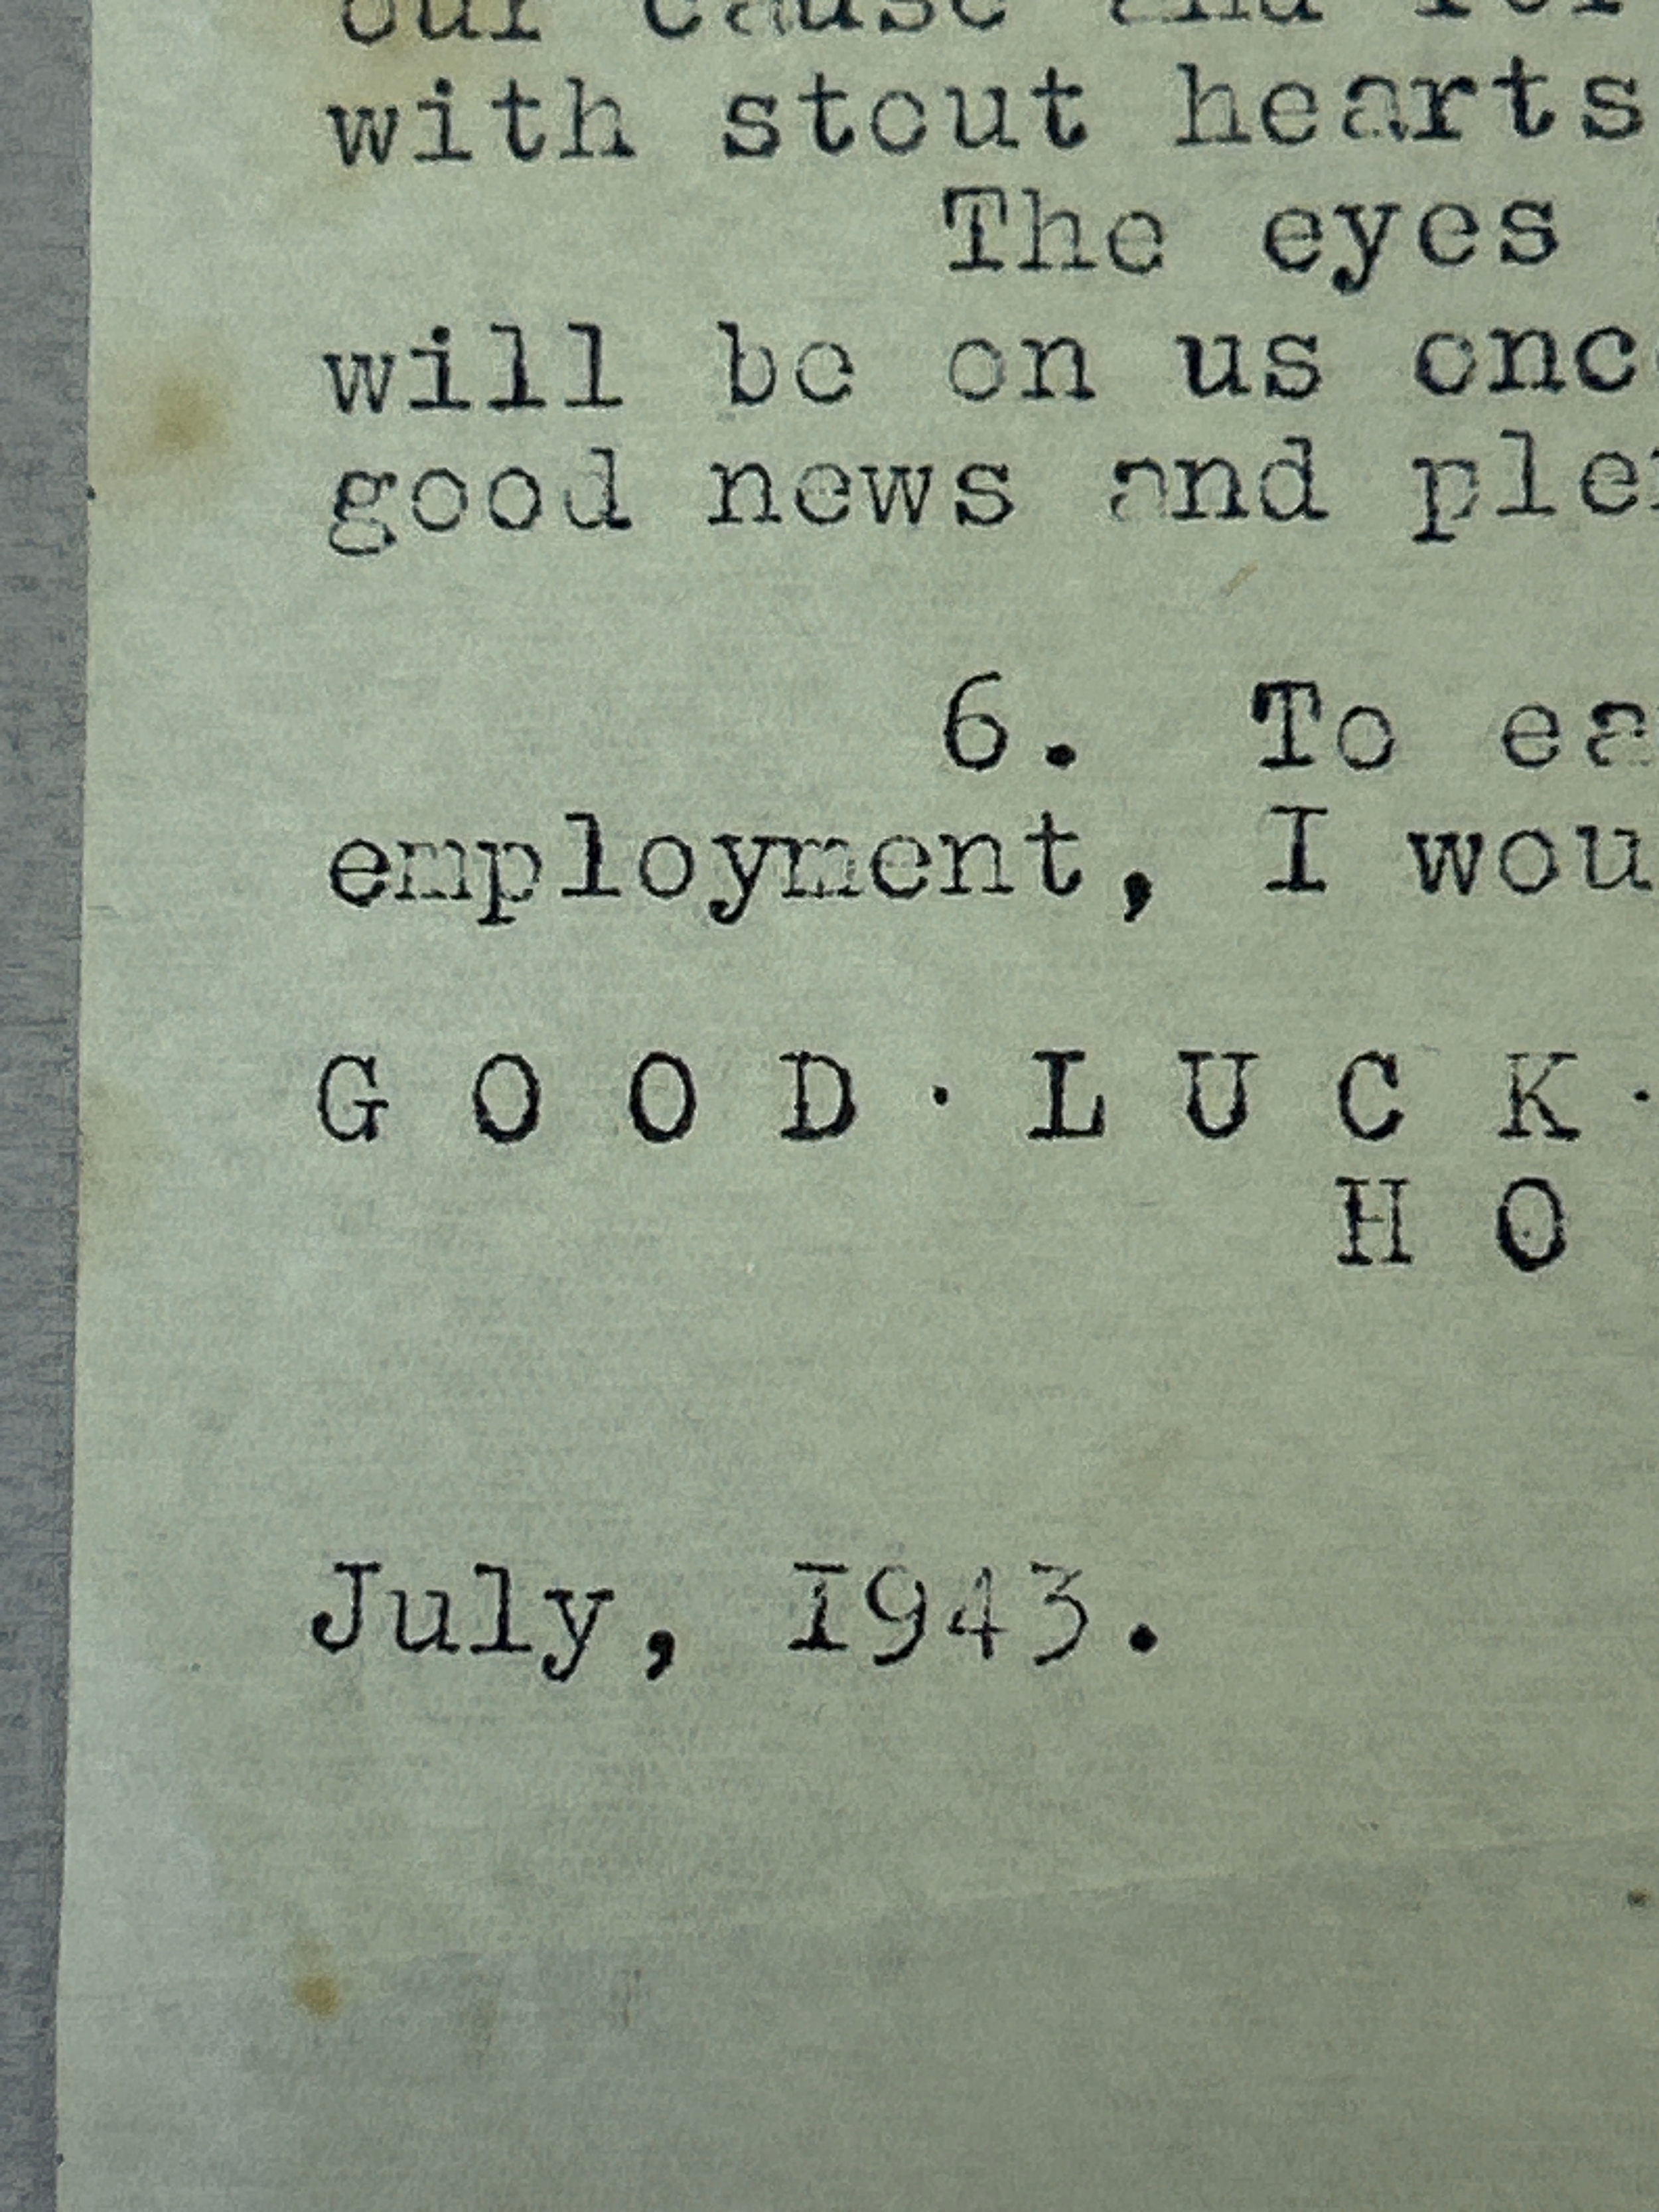 our cause and for
with stout hearts
The eyes
will be on us onc
good news and ple
6. To ea
employment, I wou
G O O D · L U C K ·
H O
July, 1943.